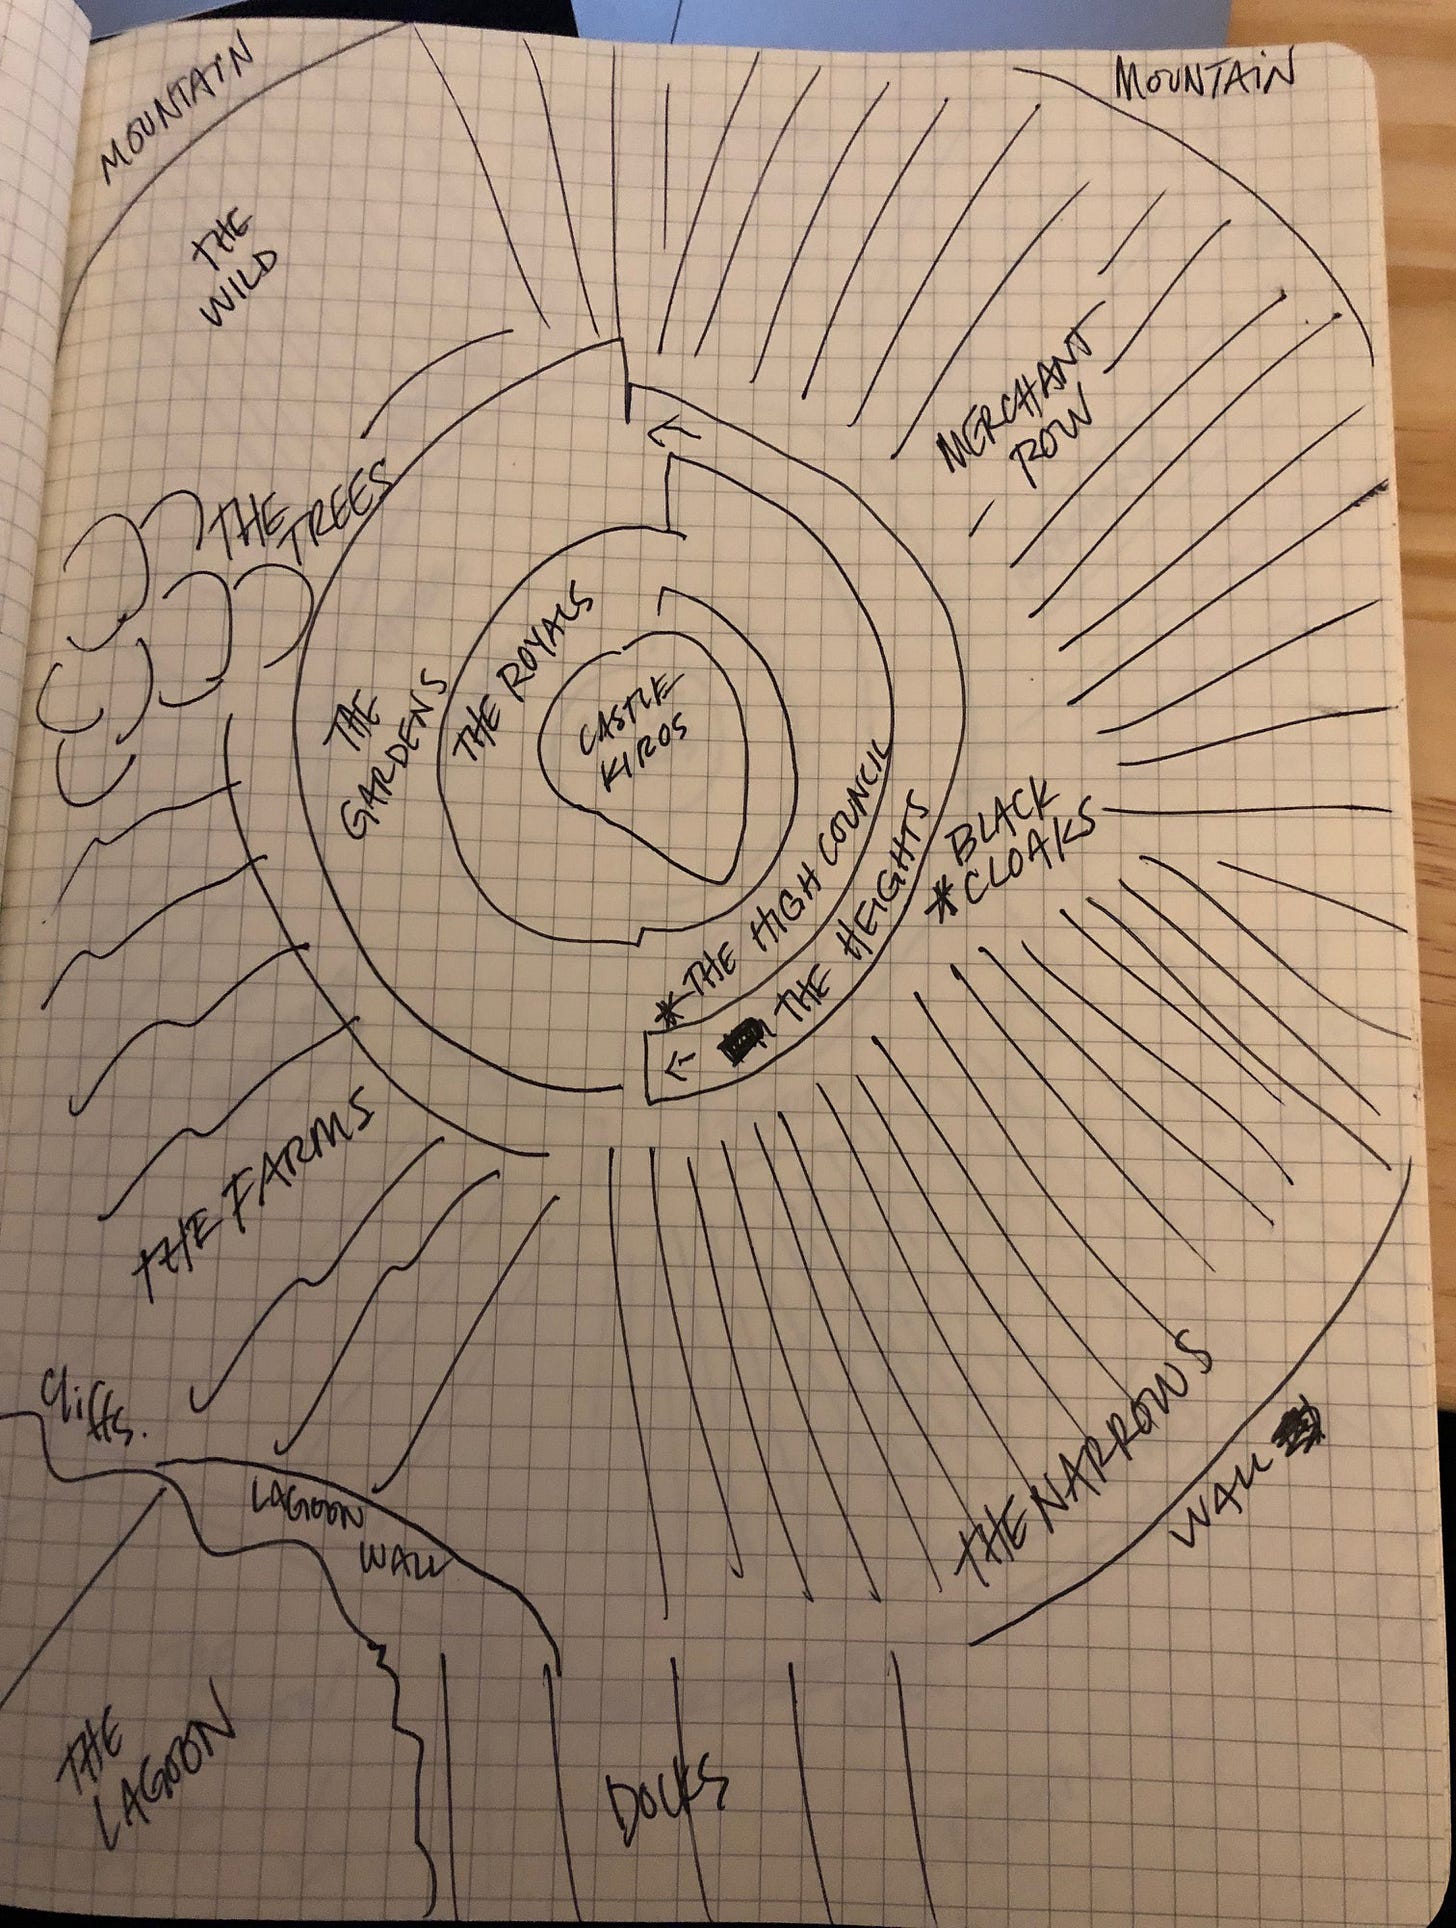 MOUNTAIN
MOUNTAIN
THE
WILD
MERCHANT
ROW
THE
TREES
THE
GARDENS
THE ROYALS
CASTLE
KIROS
* THE HIGH COUNCIL
THE HEIGHTS
BLACK
* CLOAKS
THE FARMS
Cliffs.
LAGOON
WALL
THE NARROWS
WALL
THE
LAGOON
DOCKS